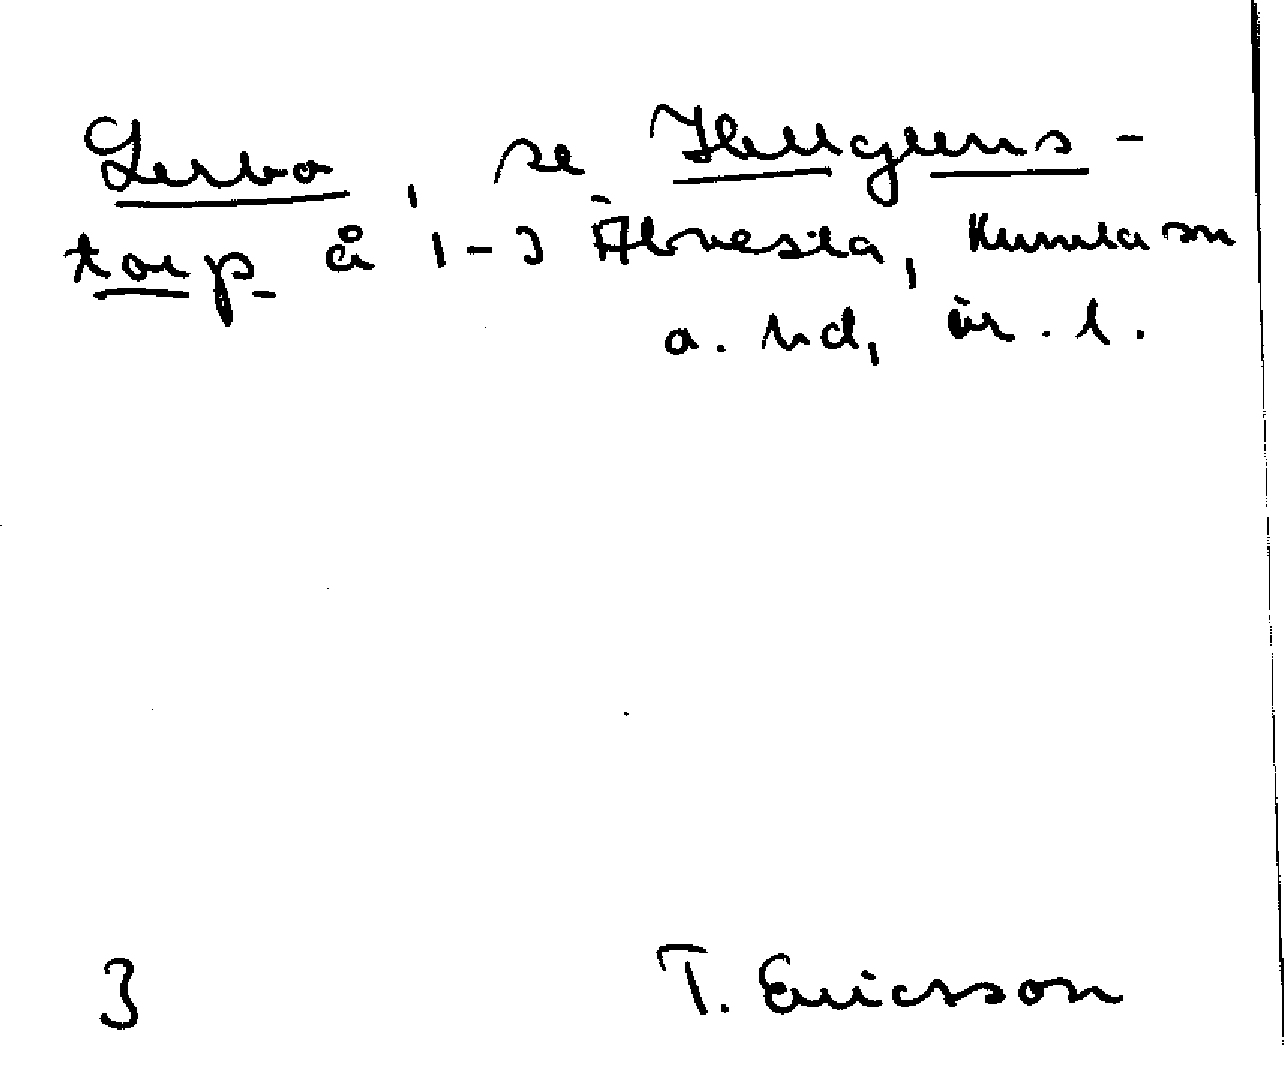 Lerbo, se Hellgrens-
torp å 1-3 Åbvesta, Kumla sn
a. hd, ör. l.
3 T. Ericson